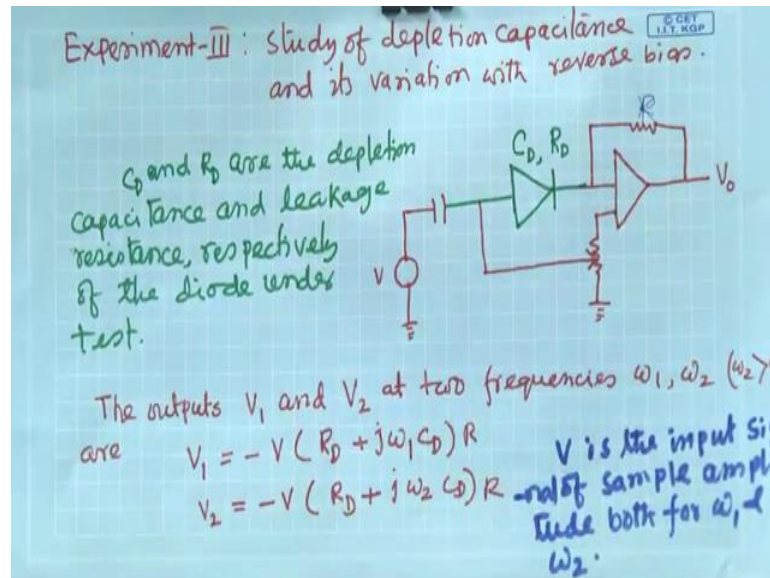 Experiment-III : study of depletion capacitance
and its variation with reverse bias.
© CET
I.I.T. KGP
C_D and R_D are the depletion
capacitance and leakage
resistance, respectively
of the diode under
test.
C_D, R_D
R
V_0
V
The outputs V_1 and V_2 at two frequencies ω_1, ω_2 (ω_2>
are V_1 = - V ( R_D + jω_1 C_D ) R
V_2 = - V ( R_D + j ω_2 C_D ) R
V is the input si
-nal of sample ampl
tude both for ω_1 &
ω_2.